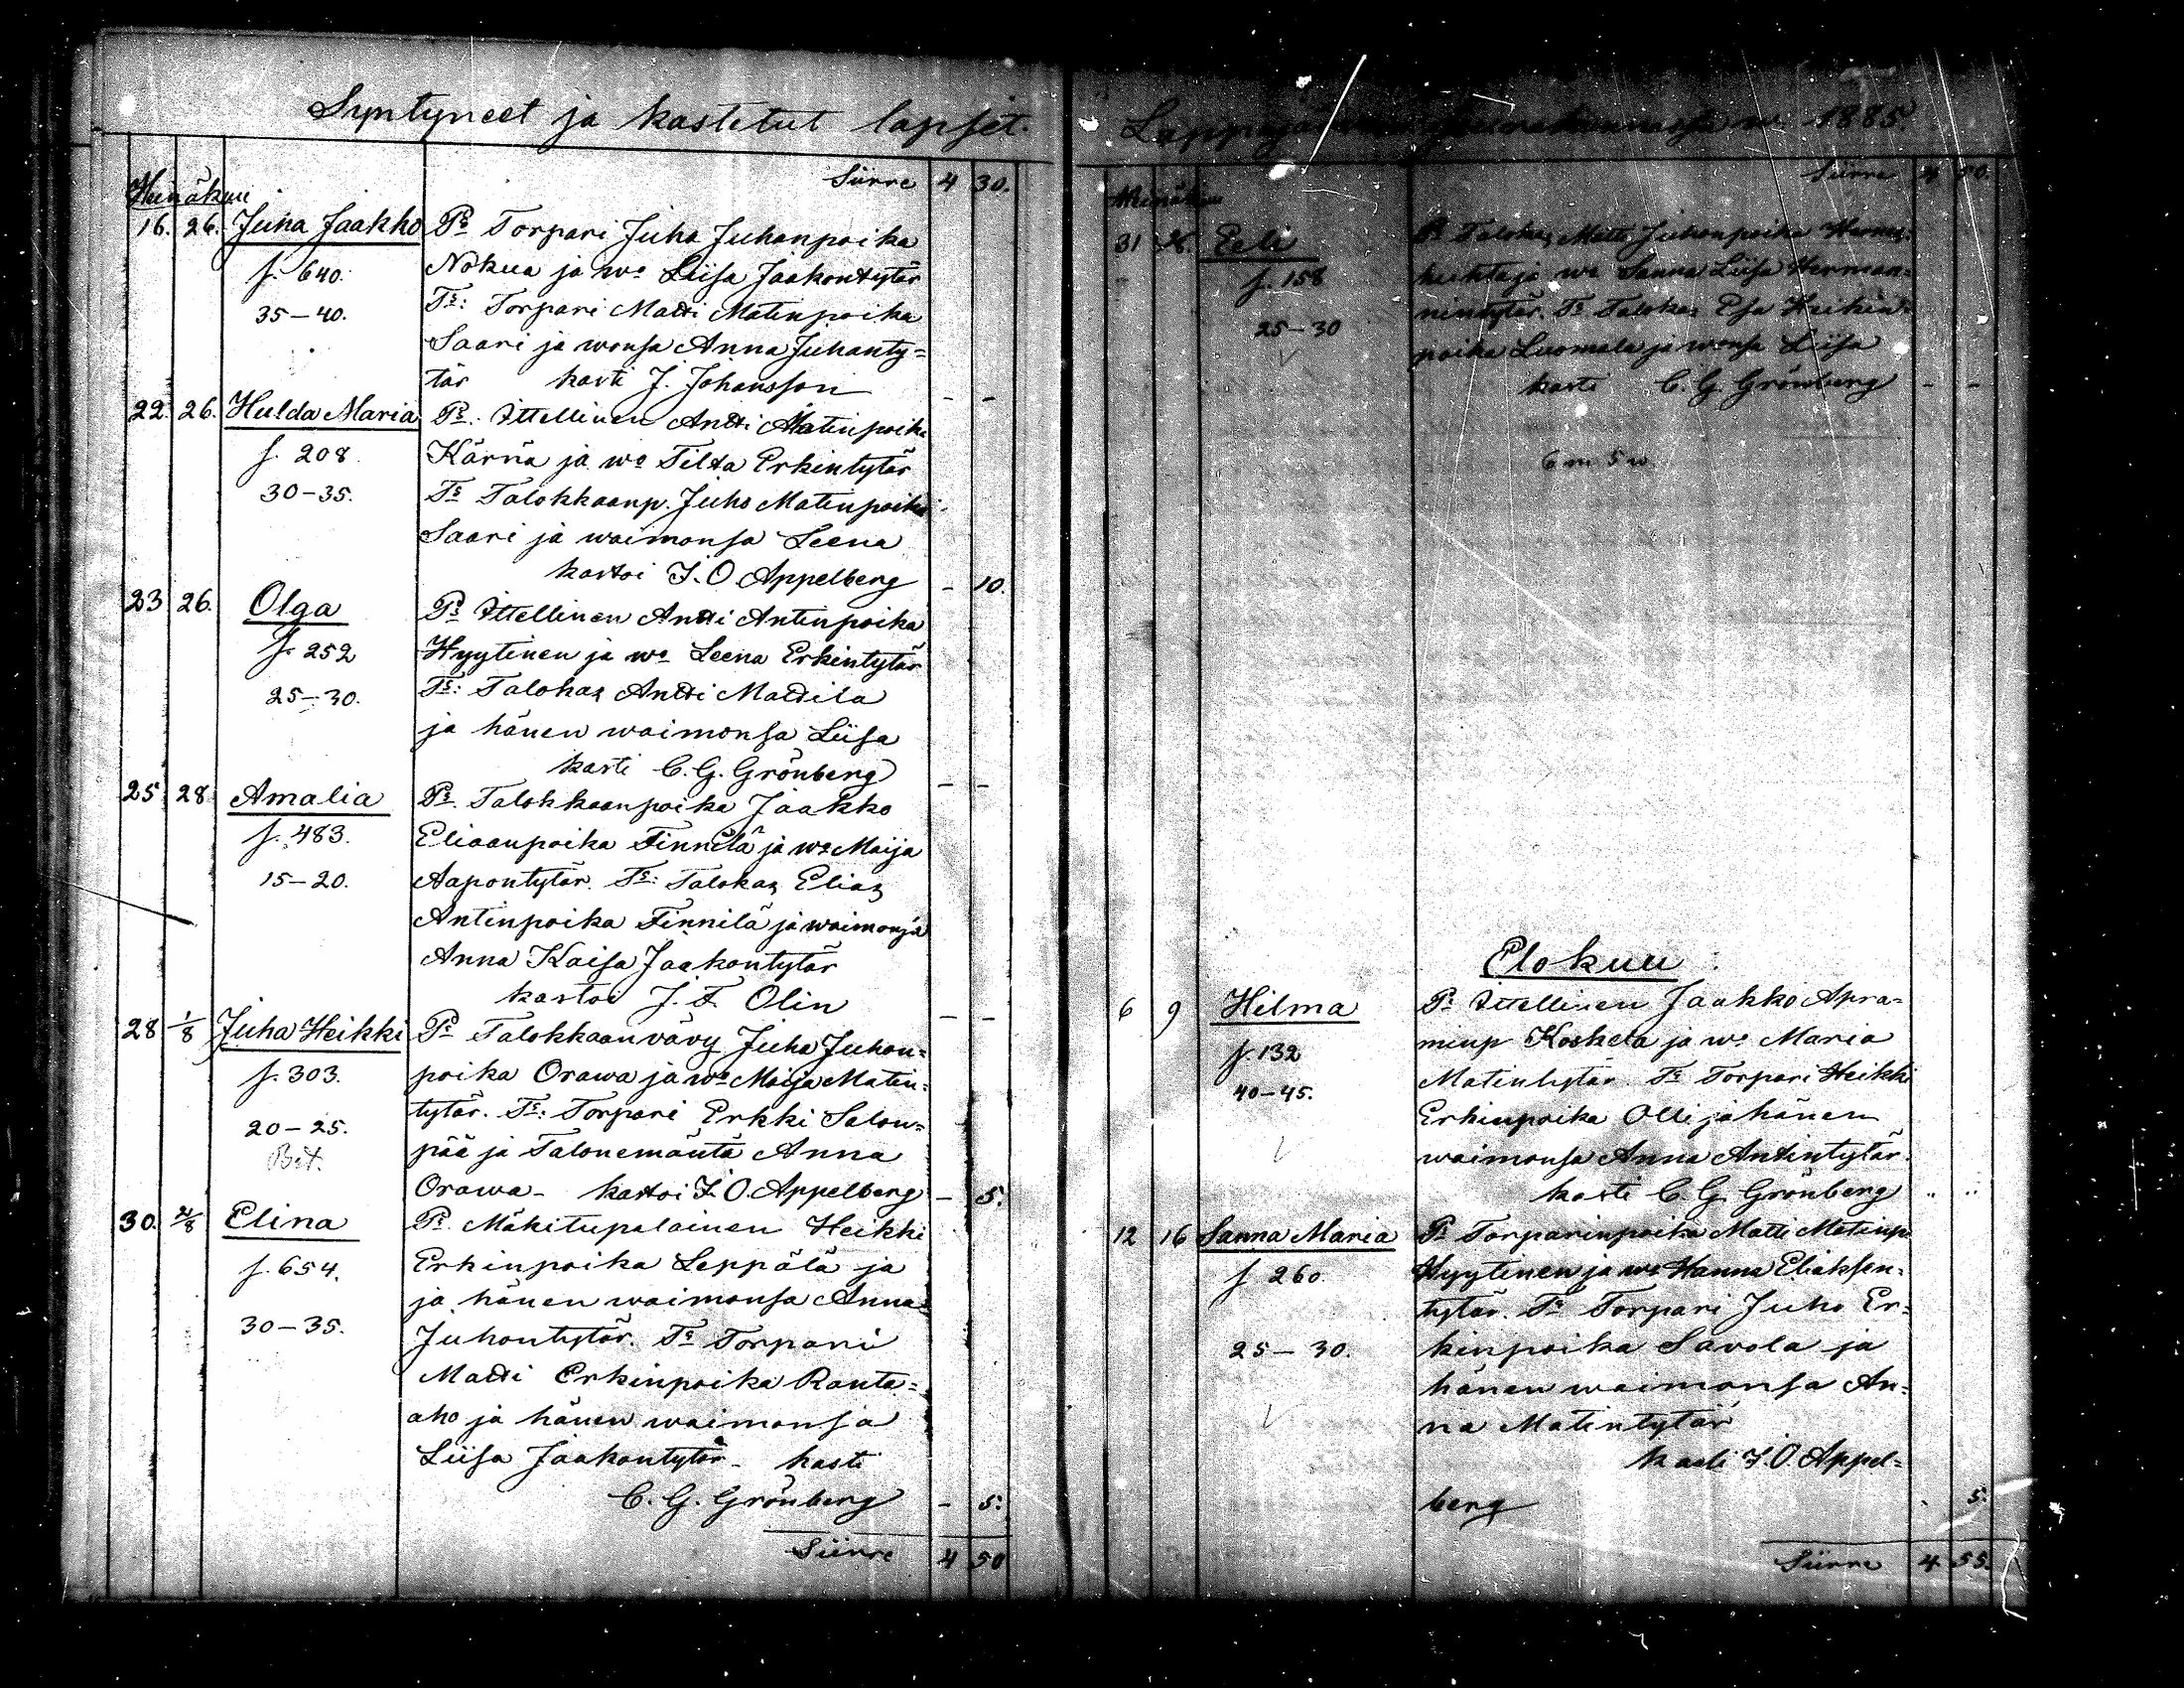 Syntyneet ja kastetut lapset.
Heinäkuu
Siirre 4 30.
16. 26. Juha Jaakko Ps Torpari Juha Juhanpoika
f. 640. Nokua ja wo Liisa Jaakontytär
35-40. Ts: Torpari Matti Matinpoika
Saari ja wonsa Anna Juhanty=
tär kasti J. Johansson - -
22 26. Hulda Maria Ps. Ittellinen Antti Matinpoika
f. 208 Kärnä ja wo Tilta Erkintytär
30-35. Ts Talokkaanp. Juho Matinpoika
Saari ja waimonsa Leena
kastoi J. O. Appelberg - 10.
23 26. Olga Ps Ittellinen Antti Antinpoika
f. 252 Hyytinen ja wo Leena Erkintytär
25-30. Ts: Talokas Antti Mattila
ja hänen waimonsa Liisa
kasti C. G. Grönberg - -
25 28 Amalia Ps. Talokkaanpoika Jaakko
f. 483. Eliaanpoika Finnilä ja wo Maija
15-20. Aapontytär. Ts: Talokas Elias
Antinpoika Finnilä ja waimonsa
Anna Kaisa Jaakontytär
kastoi J. F. Olin - -
28 1/8 Juha Heikki Ps Talokkaanvävy Juha Juhon=
f. 303. poika Orawa ja wo Maija Matin=
20-25. tytär. Ts: Torpari Erkki Salon=
Bet. pää ja Talonemäntä Anna
Orawa - kastoi J. O. Appelberg - 5.
30. 2/8 Elina Ps. Mäkitupalainen Heikki
f. 654. Erkinpoika Leppälä ja
ja hänen waimonsa Anna
30-35. Juhontytär. Ts Torpari
Matti Erkinpoika Ranta=
aho ja hänen waimonsa
Liisa Jaakontytär - kasti
C. G. Grönberg - 5.
Siirre 4 50
w. 1885.
Heinäkuu
Siirre 4 50.
31 Eeli Ps Talokas Matti Juhonpoika
f. 158 ja wo Sanna Liisa Herman=
25-30 nintytär. Ts Talokas Esa Heikin=
poika Luomala ja wonsa Liisa
kasti C. G. Grönberg - -
6 m 5 w
Elokuu
6 9 Hilma Ps Ittellinen Jaakko Apra=
f. 132 minp Koskela ja wo Maria
40-45. Matintytär. Ts Torpari Heikki
Erkinpoika Olli ja hänen
waimonsa Anna Antintytär.
kasti C. G. Grönberg
12 16 Sanna Maria Ps Torparinpoika Matti Matinp
f 260. Hyytinen ja wo Hanna Eliaksen=
tytär. Ts Torpari Juho Er=
25-30. kinpoika Savola ja
hänen waimonsa An=
na Matintytär
kasti J. O Appel=
berg 5.
Siirre 4 55.